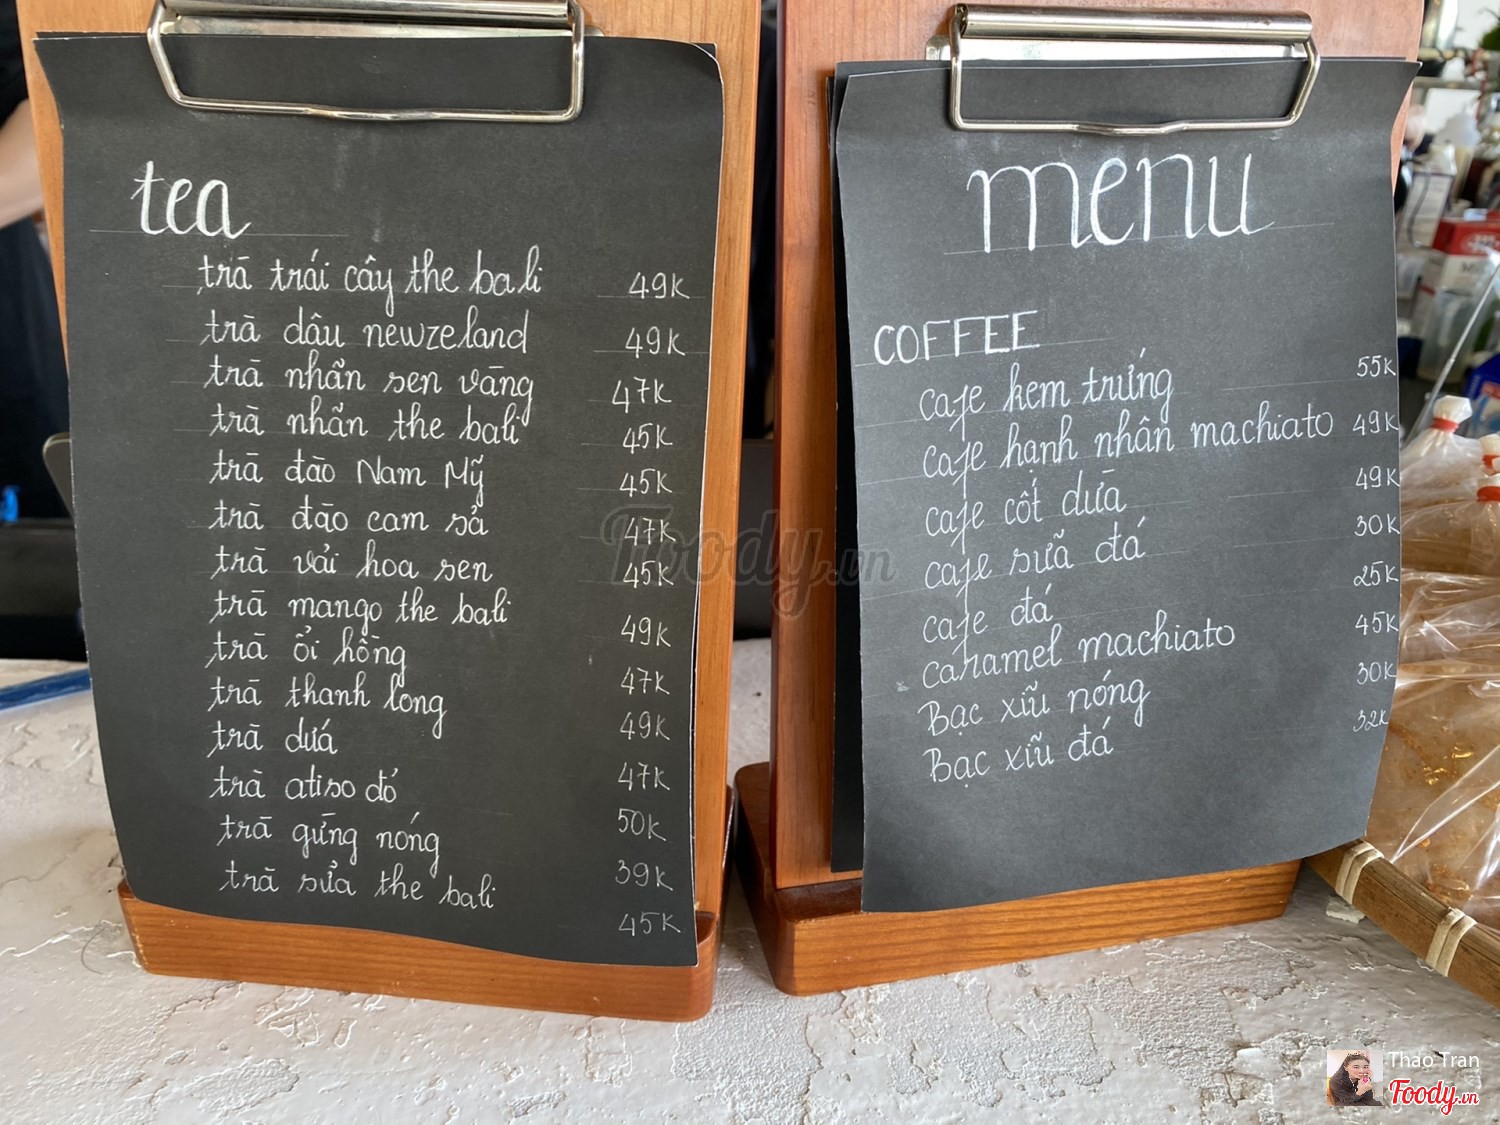 tea
trà trái cây the bali 49K
trà dâu newzeland 49K
trà nhãn sen vàng 47K
trà nhãn the bali 45K
trà đào Nam Mỹ 45K
trà đào cam sả 47K
trà vải hoa sen 45K
trà mango the bali 49K
trà ổi hồng 47K
trà thanh long 49K
trà dứa 47K
trà atiso đỏ 50K
trà gừng nóng 39K
trà sửa the bali 45K
menu
COFFEE
cafe kem trứng 55K
cafe hạnh nhân machiato 49K
cafe cốt dừa 49K
cafe sữa đá 30K
cafe đá 25K
caramel machiato 45K
Bạc xĩu nóng 30K
Bạc xĩu đá 32K
Foody.vn
Thao Tran
Foody.vn